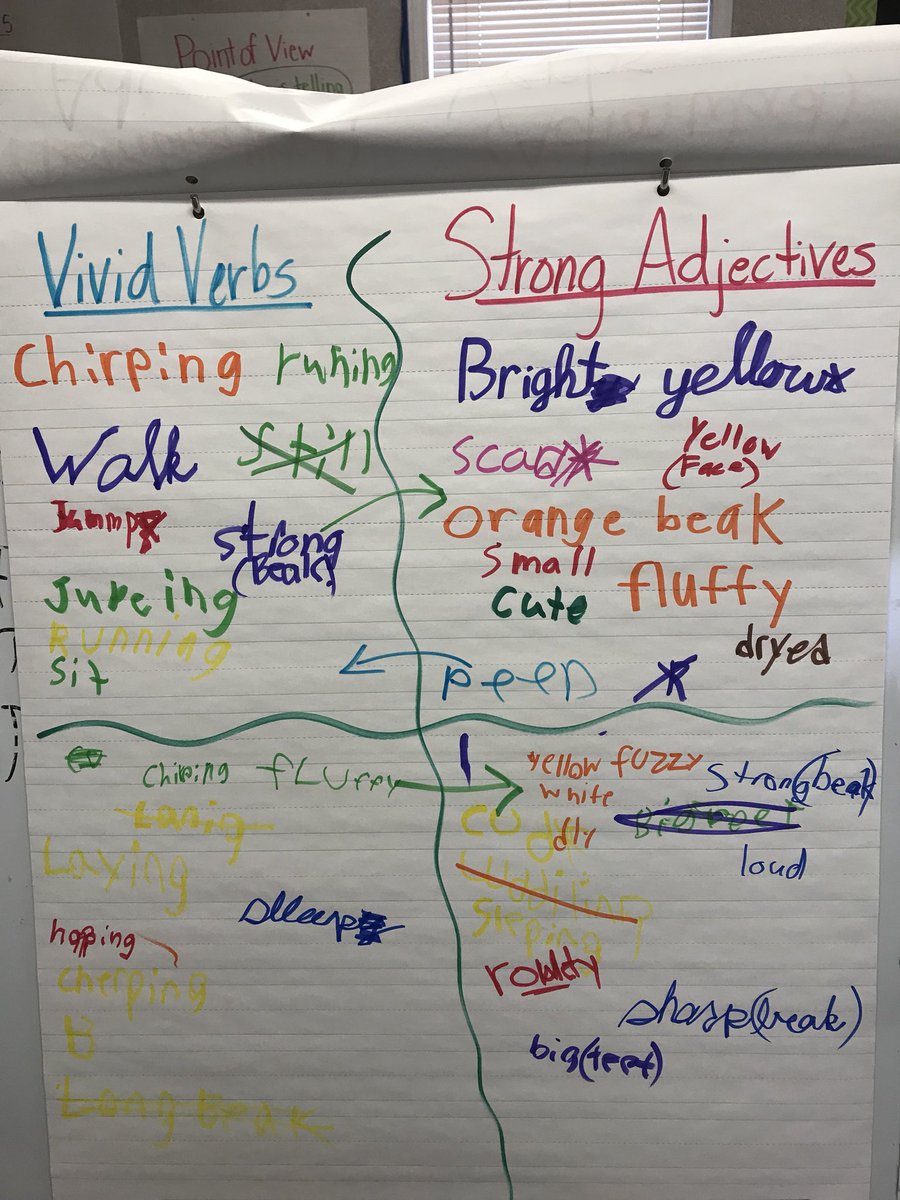 5
Point of View
telling
Vivid Verbs
Chirping runing
Walk Still
Jump
strong
(Beak)
Jumping
Running
Sit
Strong Adjectives
Bright yellow
scary
Yellow
(Face)
orange beak
Small
fluffy
Cute
dryed
peep
Chirping fluffy
Laying
sleep
hopping
cherping
B
Long Beak
yellow fuzzy
white
strong (beak)
loud
Sleping
rowdty
sharp (beak)
big (feet)